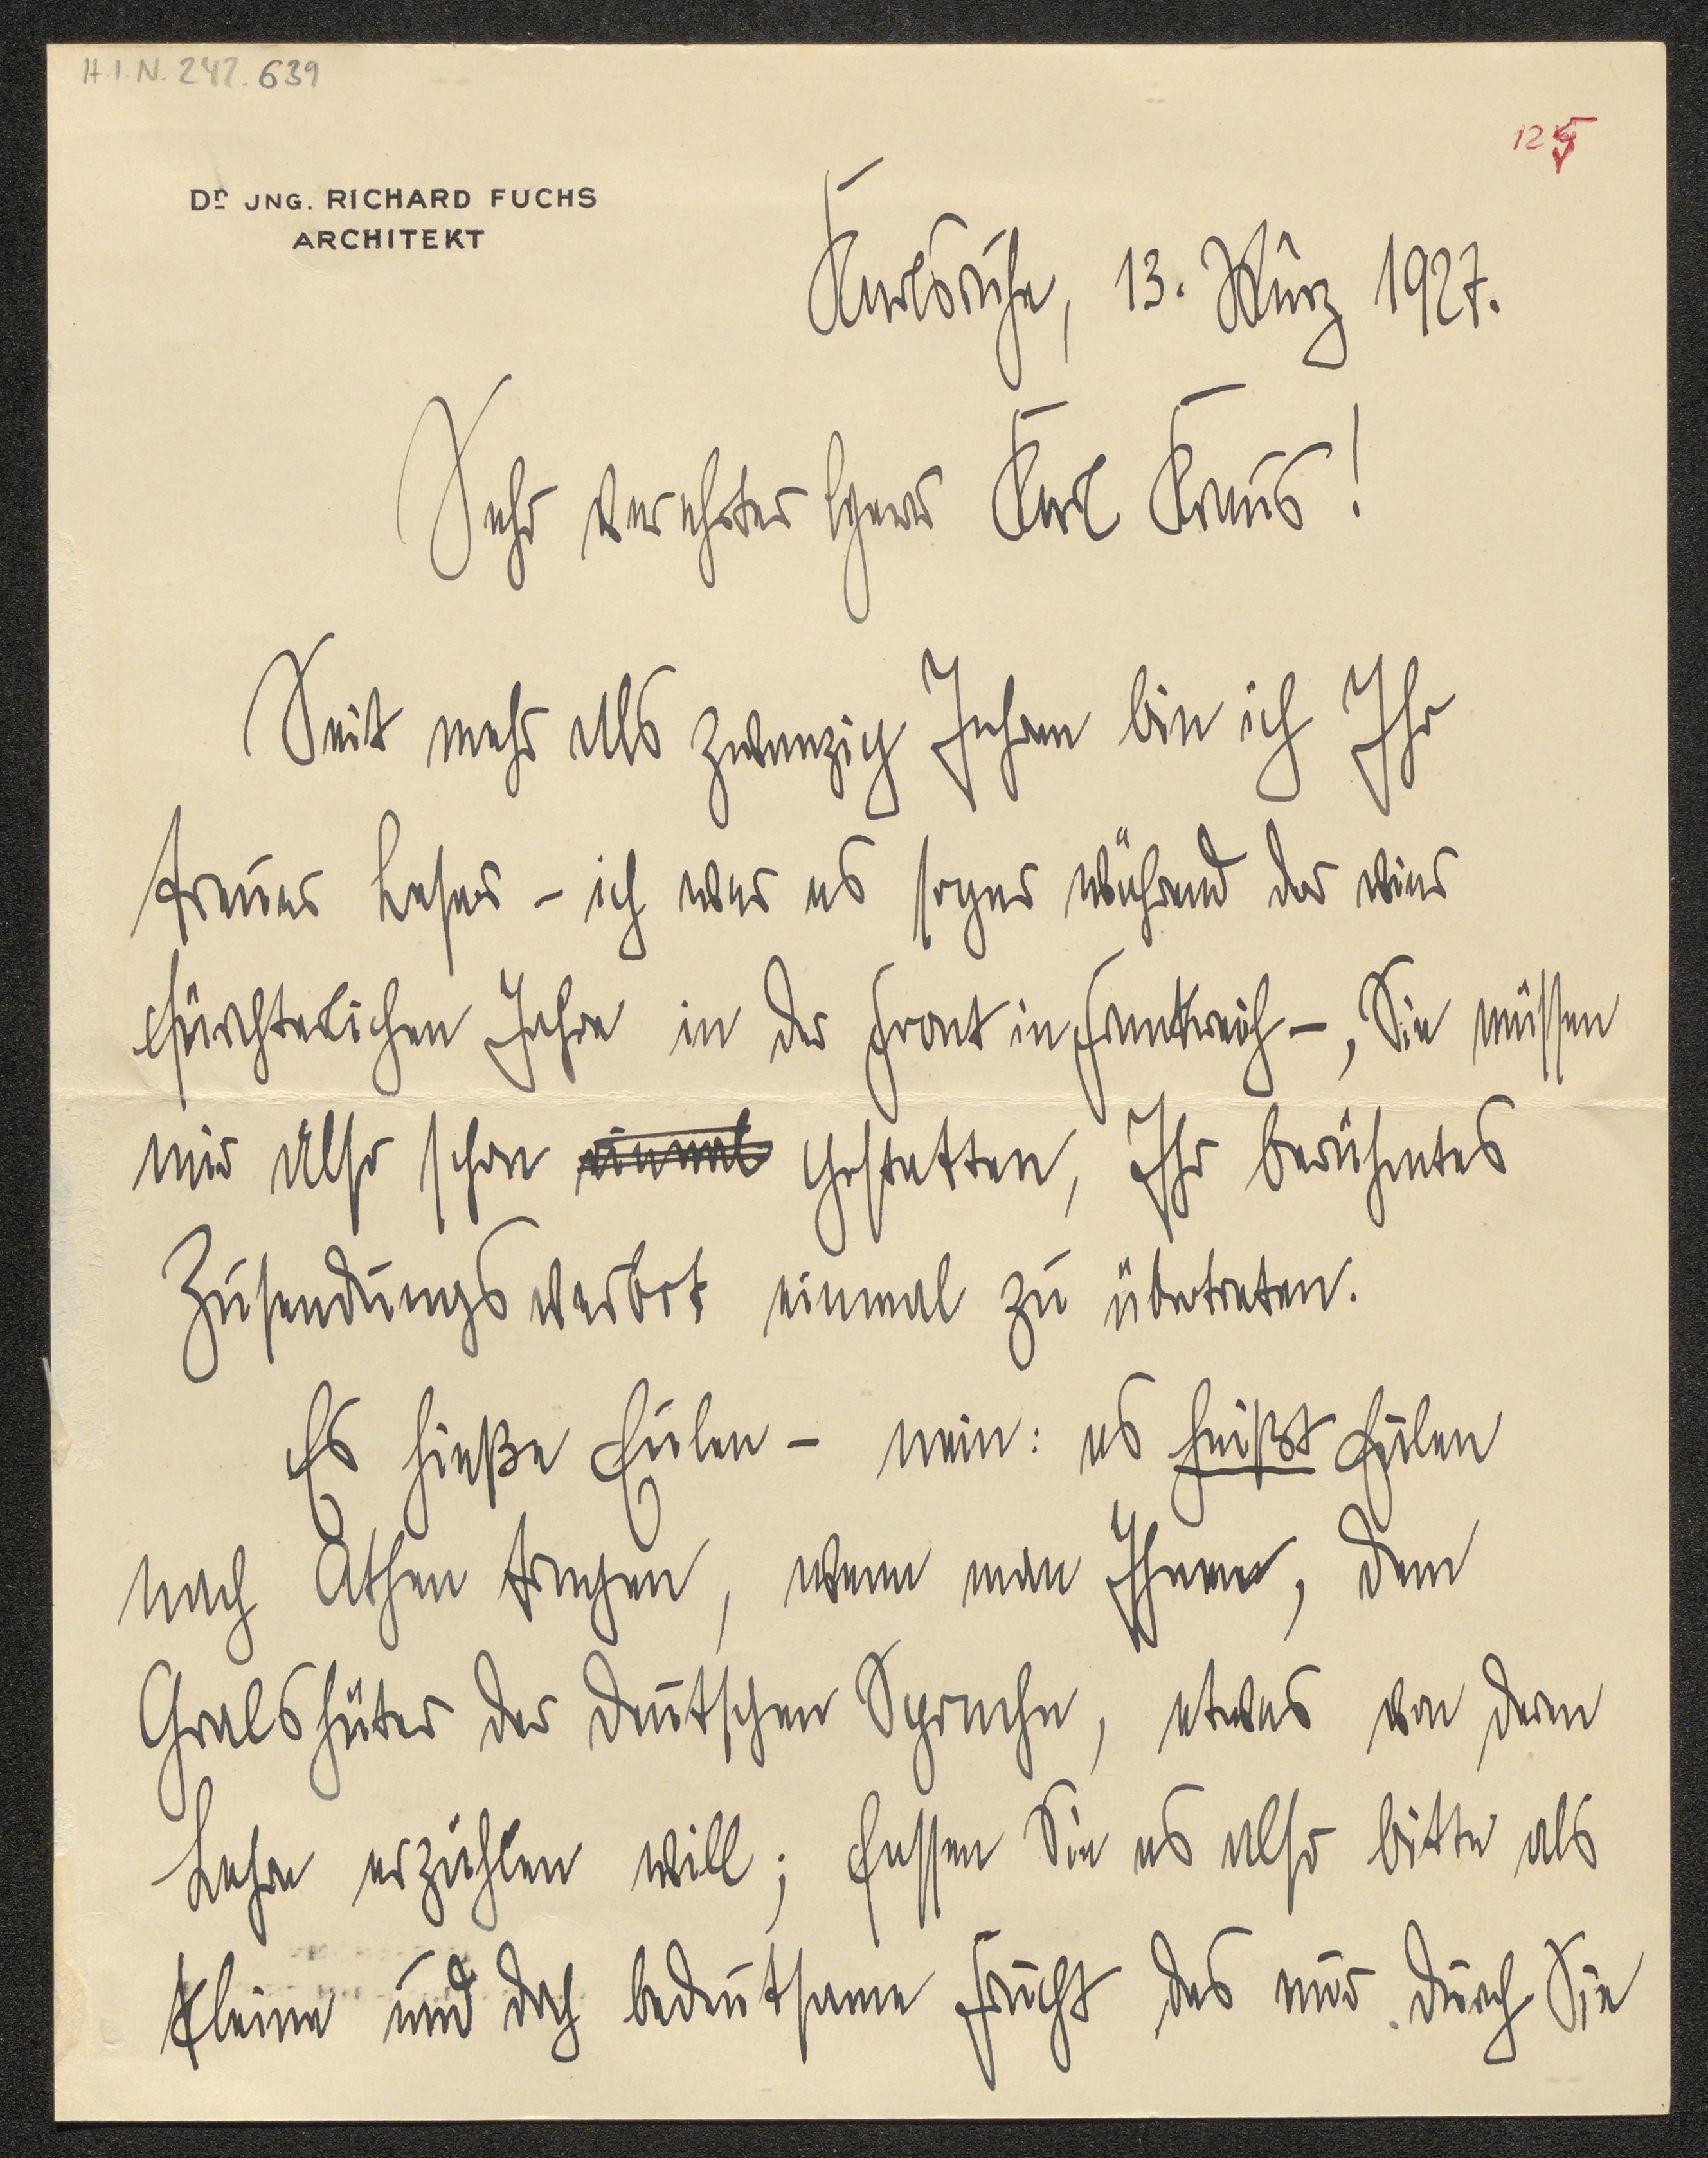 H.I.N. 242.639
125
Dr JNG. RICHARD FUCHS
ARCHITEKT
Karlsruhe, 13. März 1927.
Sehr verehrter Herr Karl Kraus!
Seit mehr als zwanzig Jahren bin ich Ihr
treuer Leser – ich war es sogar während der vier
fürchterlichen Jahre in der Front in Frankreich –, Sie müssen
mir also schon einmal gestatten, Ihr berühmtes
Zusendungsverbot einmal zu übertreten.
Es hieße Eulen – nein: es heißt Eulen
nach Athen tragen, wenn man Ihnen, dem
Gralshüter der deutschen Sprache, etwas von deren
Lehre erzählen will; fassen Sie es also bitte als
kleine und doch bedeutsame Frucht des nur durch Sie